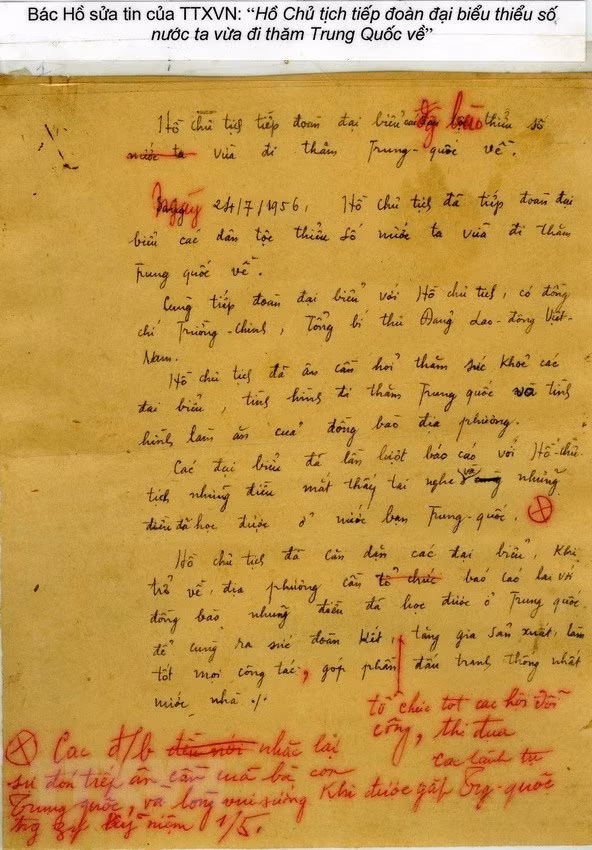 Bác Hồ sửa tin của TTXVN: “Hồ Chủ tịch tiếp đoàn đại biểu thiểu số
nước ta vừa đi thăm Trung Quốc về”
Hồ chủ tịch tiếp đoàn đại biểu đg bào thiểu số
nước ta vừa đi thăm Trung-quốc về.
Ngày 24/7/1956, Hồ chủ tịch đã tiếp đoàn đại
biểu các dân tộc thiểu số nước ta vừa đi thăm
Trung quốc về.
Cùng tiếp đoàn đại biểu với Hồ chủ tịch, có đồng
chí Trường-Chinh, Tổng bí thư Đảng Lao-động Việt-
Nam.
Hồ chủ tịch đã ân cần hỏi thăm sức khoẻ các
đại biểu, tình hình đi thăm Trung quốc và tình
hình làm ăn của đồng bào địa phương.
Các đại biểu đã lần lượt báo cáo với Hồ-chủ-
tịch những điều mắt thấy tai nghe và những
điều đã học được ở nước bạn Trung-quốc. ⊗
Hồ chủ tịch đã căn dặn các đại biểu, khi
trở về, địa phương cần tổ chức báo cáo lại với
đồng bào những điều đã học được ở Trung quốc
để cùng ra sức đoàn kết, tăng gia sản xuất, làm
tốt mọi công tác, góp phần đấu tranh thống nhất
nước nhà ./.
tổ chức tốt các hội đổi
công, thi đua
⊗ Các đ/b nhắc lại
sự đón tiếp ân cần của bà con
Trung quốc, và lòng vui sướng khi được gặp các lãnh tụ Trg-quốc
kỷ niệm 1/5.